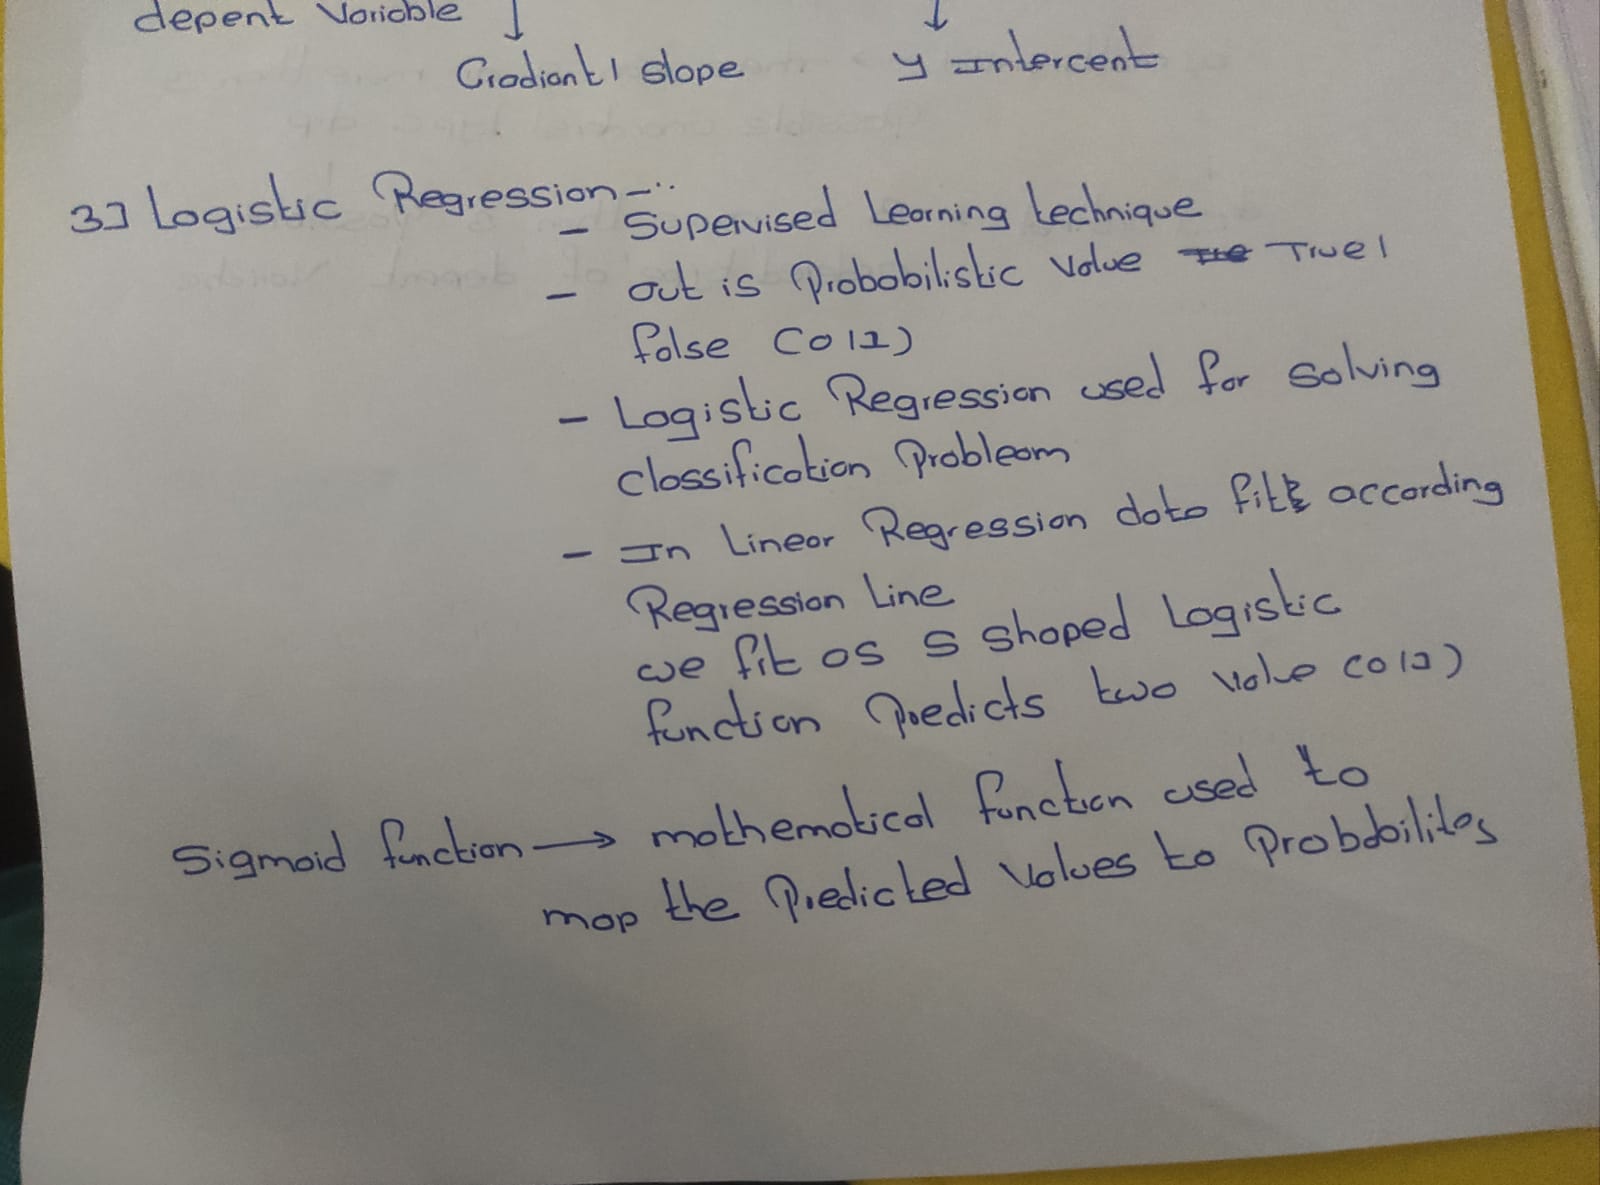 depent Variable
Gradiant / slope y Intercent
3] Logistic Regression -:
- Supervised Learning technique
- out is Probabilistic Value True /
false (0/1)
- Logistic Regression used for solving
classification Probleam
- In Linear Regression data fitt according
Regression Line
we fit as S shaped Logistic
function Predicts two value (0/1)
Sigmoid function → mathematical function used to
map the Predicted Values to Probabilites